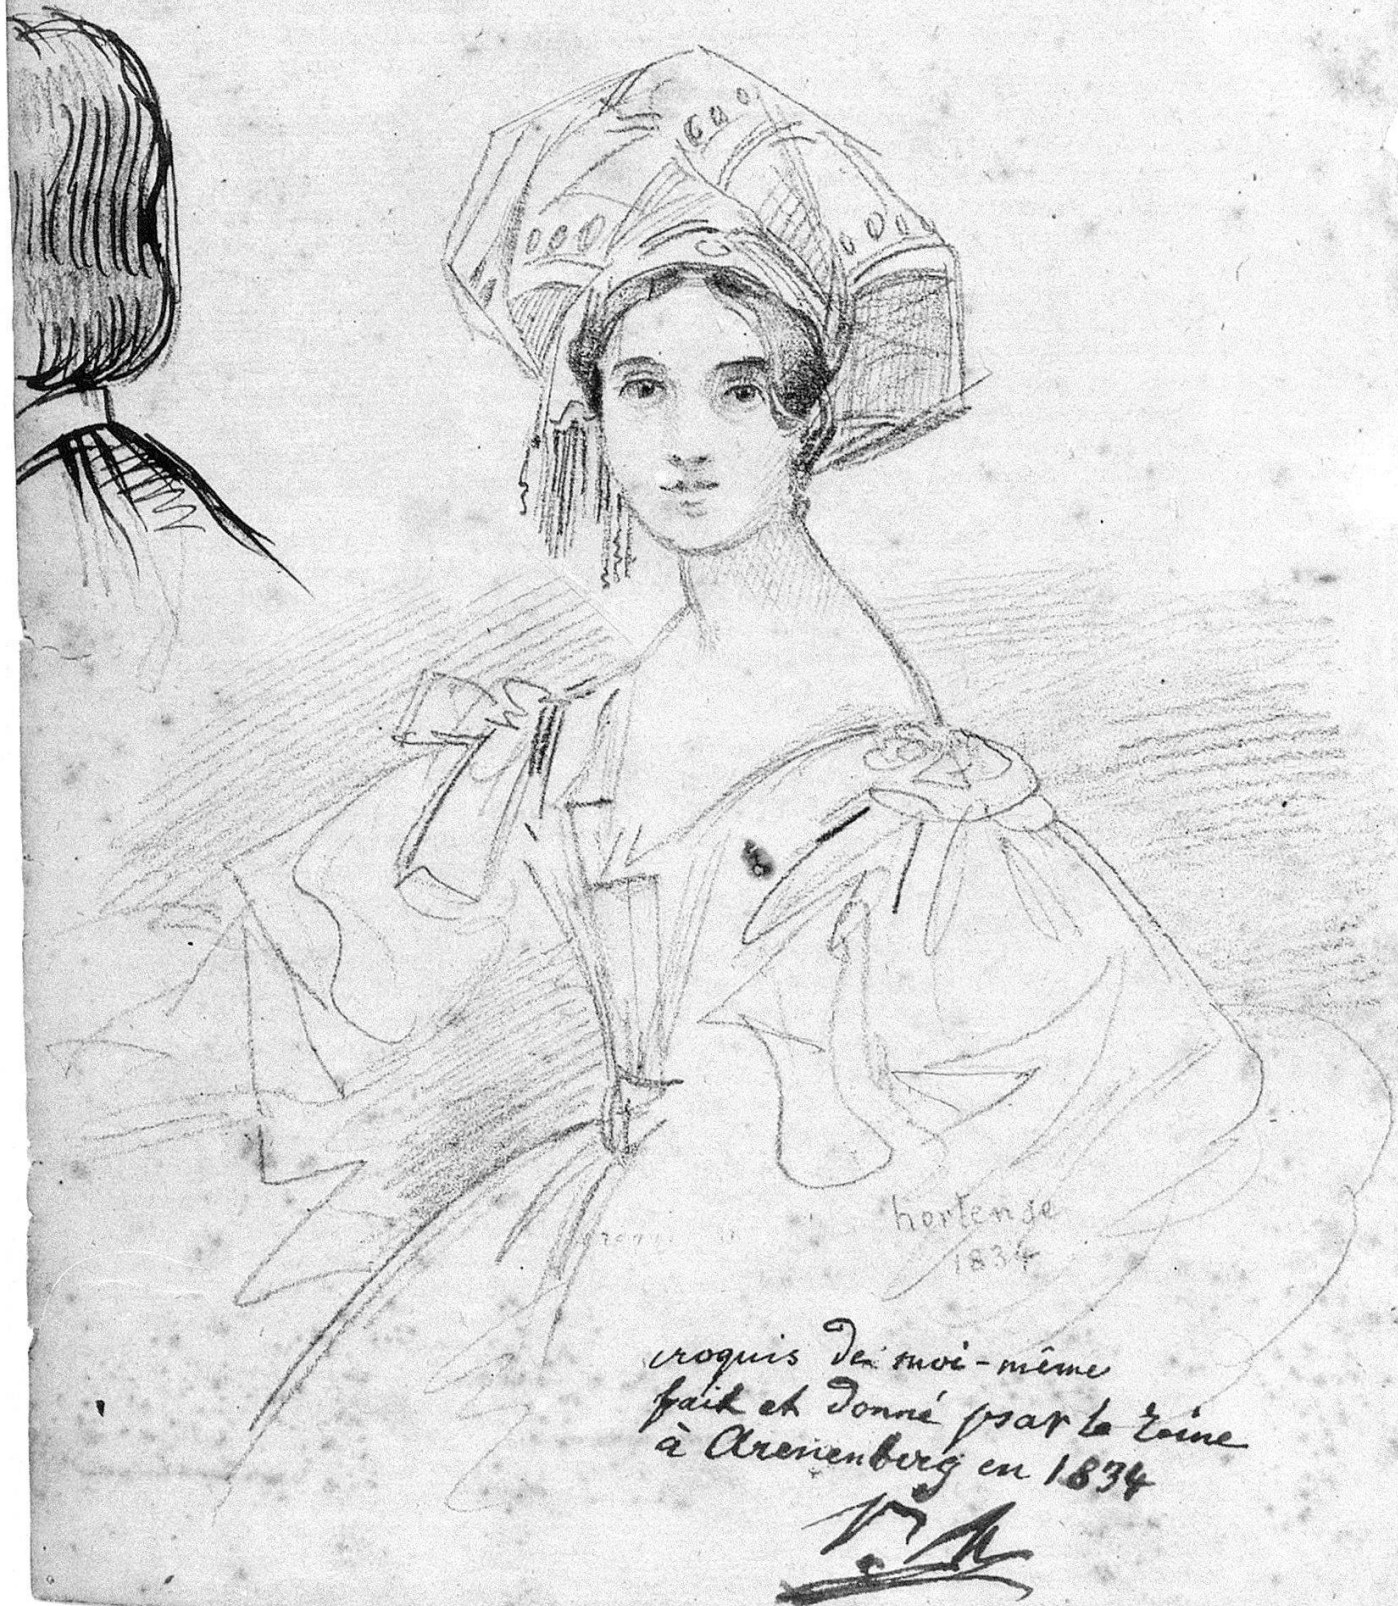 hortense
1834
croquis de moi-même
fait et donné par la reine
à Arenenberg en 1834